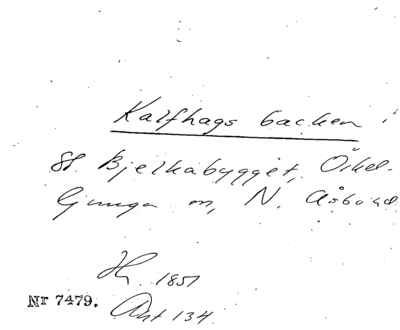 Kalfhags backen
St. Bjelkabygget, Örkel-
ljunga sn, N. Åsbo hd.
Hy. 1851
Nr 7479. Akt 134